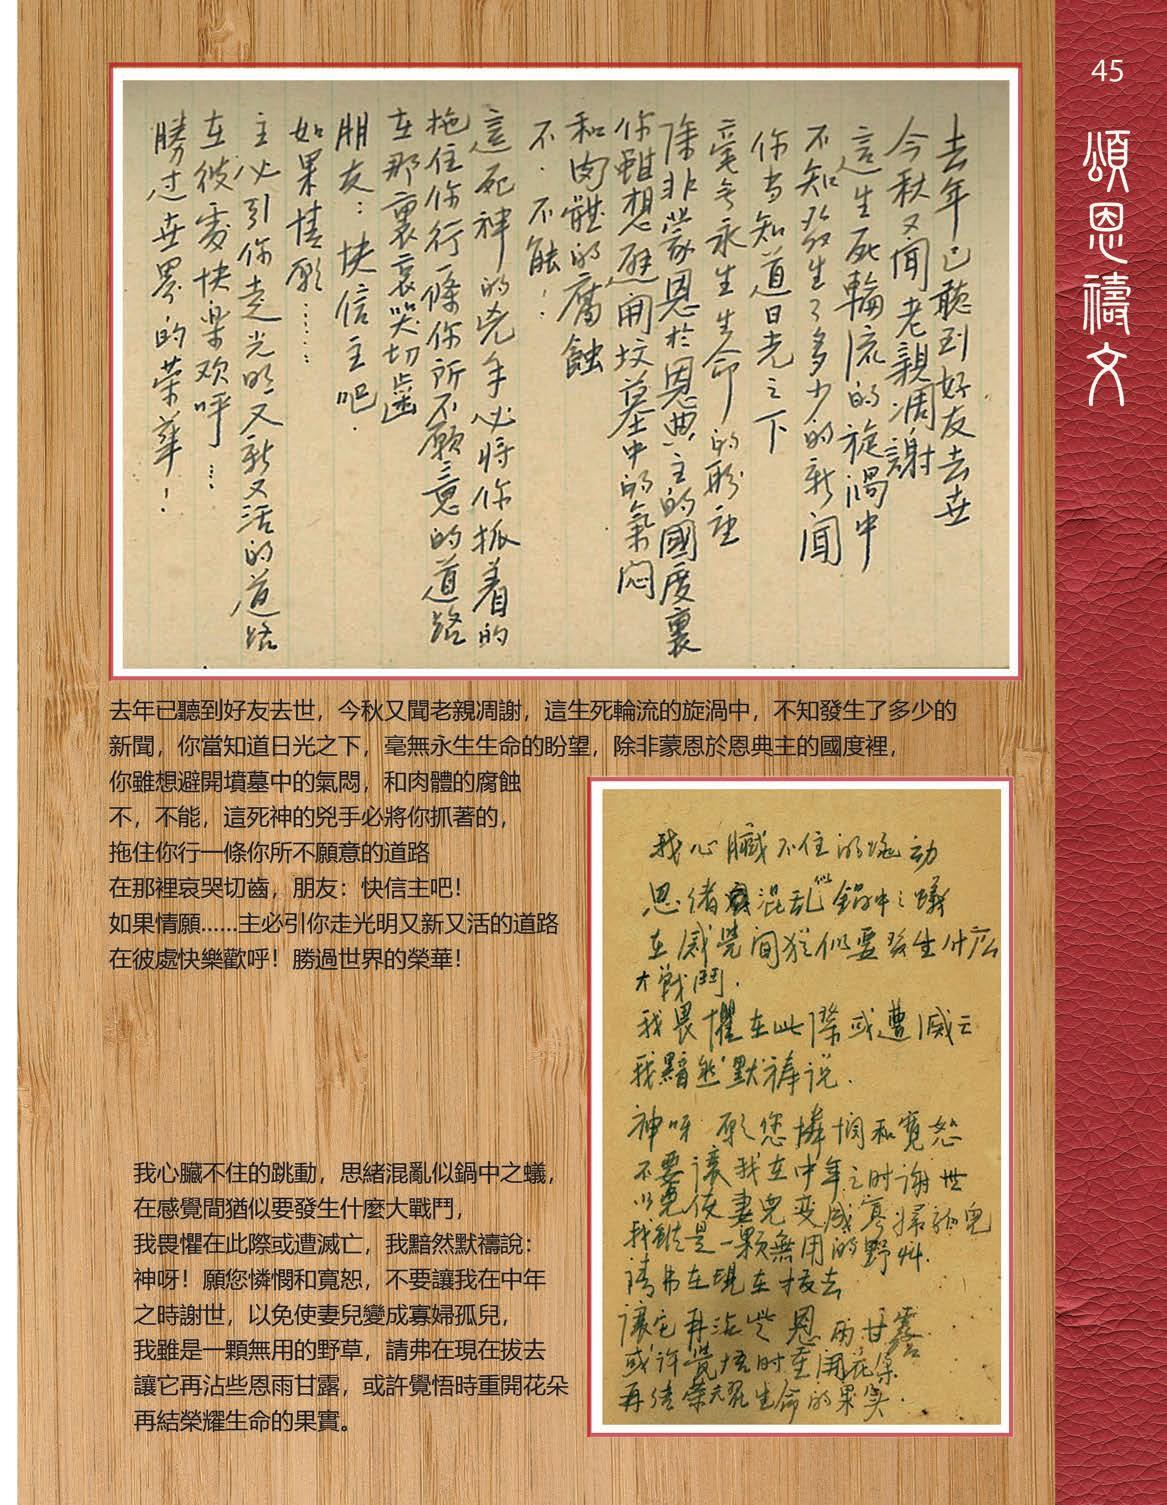 45
頌恩禱文
去年已聽到好友去世
今秋又聞老親凋謝
這生死輪流的旋渦中
不知發生了多少的新聞
你当知道日光之下
毫無永生生命的盼望
除非蒙恩於恩典主的國度裏
你雖想避開坟墓中的氣悶
和肉體的腐蝕
不．不能！
這死神的兇手必將你抓着的
拖住你行一條你所不願意的道路
在那裏哀哭切齒
朋友：快信主吧．
如果情願……
主必引你走光明又新又活的道路
在彼處快樂欢呼…
勝过世界的荣華！
去年已聽到好友去世，今秋又聞老親凋謝，這生死輪流的旋渦中，不知發生了多少的
新聞，你當知道日光之下，毫無永生生命的盼望，除非蒙恩於恩典主的國度裡，
你雖想避開墳墓中的氣悶，和肉體的腐蝕
不，不能，這死神的兇手必將你抓著的，
拖住你行一條你所不願意的道路
在那裡哀哭切齒，朋友：快信主吧！
如果情願......主必引你走光明又新又活的道路
在彼處快樂歡呼！勝過世界的榮華！
我心臟不住的跳动
思绪混乱似鍋中之蟻
在感覺间犹似要發生什広
大戰鬥．
我畏懼在此際或遭滅亡
我黯然默祷说．
神呀 願您憐憫和寬恕
不要讓我在中年之时谢世
以免使妻兒变成寡婦孤兒
我雖是一顆無用的野艸．
請弗在現在拔去
讓它再沾些恩雨甘露
或许覺悟时重開花朵
再结荣耀生命的果实．
我心臟不住的跳動，思緒混亂似鍋中之蟻，
在感覺間猶似要發生什麼大戰鬥，
我畏懼在此際或遭滅亡，我黯然默禱說：
神呀！願您憐憫和寬恕，不要讓我在中年
之時謝世，以免使妻兒變成寡婦孤兒，
我雖是一顆無用的野草，請弗在現在拔去
讓它再沾些恩雨甘露，或許覺悟時重開花朵
再結榮耀生命的果實。